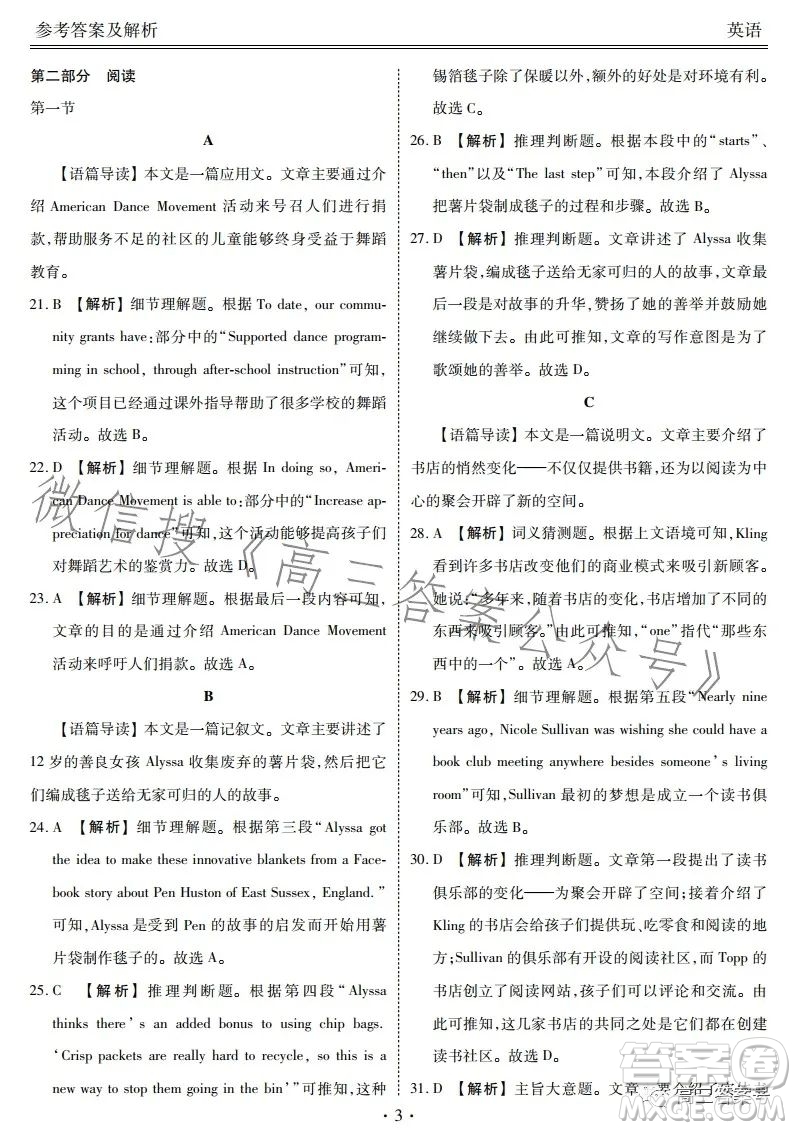 参考答案及解析
英语
第二部分 阅读
第一节
A
【语篇导读】本文是一篇应用文。文章主要通过介
绍 American Dance Movement 活动来号召人们进行捐
款,帮助服务不足的社区的儿童能够终身受益于舞蹈
教育。
21. B 【解析】细节理解题。根据 To date, our commu-
nity grants have:部分中的“Supported dance program-
ming in school, through after-school instruction”可知,
这个项目已经通过课外指导帮助了很多学校的舞蹈
活动。故选 B。
22. D 【解析】细节理解题。根据 In doing so, Ameri-
can Dance Movement is able to:部分中的“Increase ap-
preciation for dance”可知,这个活动能够提高孩子们
对舞蹈艺术的鉴赏力。故选 D。
23. A 【解析】细节理解题。根据最后一段内容可知,
文章的目的是通过介绍 American Dance Movement
活动来呼吁人们捐款。故选 A。
B
【语篇导读】本文是一篇记叙文。文章主要讲述了
12 岁的善良女孩 Alyssa 收集废弃的薯片袋,然后把它
们编成毯子送给无家可归的人的故事。
24. A 【解析】细节理解题。根据第三段“Alyssa got
the idea to make these innovative blankets from a Face-
book story about Pen Huston of East Sussex, England.”
可知,Alyssa 是受到 Pen 的故事的启发而开始用薯
片袋制作毯子的。故选 A。
25. C 【解析】推理判断题。根据第四段“Alyssa
thinks there's an added bonus to using chip bags.
‘Crisp packets are really hard to recycle, so this is a
new way to stop them going in the bin’”可推知,这种
锡箔毯子除了保暖以外,额外的好处是对环境有利。
故选 C。
26. B 【解析】推理判断题。根据本段中的“starts”、
“then”以及“The last step”可知,本段介绍了 Alyssa
把薯片袋制成毯子的过程和步骤。故选 B。
27. D 【解析】推理判断题。文章讲述了 Alyssa 收集
薯片袋,编成毯子送给无家可归的人的故事,最后
一段是对故事的升华,赞扬了她的善举并鼓励她
继续做下去。由此可推知,文章的写作意图是为了
歌颂她的善举。故选 D。
C
【语篇导读】本文是一篇说明文。文章主要介绍了
书店的悄然变化——不仅仅提供书籍,还为以阅读为中
心的聚会开辟了新的空间。
28. A 【解析】词义猜测题。根据上文语境可知,Kling
看到许多书店改变他们的商业模式来吸引新顾客。
她说:“多年来,随着书店的变化,书店增加了不同的
东西来吸引顾客。”由此可推知,“one”指代“那些东
西中的一个”。故选 A。
29. B 【解析】细节理解题。根据第五段“Nearly nine
years ago, Nicole Sullivan was wishing she could have a
book club meeting anywhere besides someone's living
room”可知,Sullivan 最初的梦想是成立一个读书俱
乐部。故选 B。
30. D 【解析】推理判断题。文章第一段提出了读书
俱乐部的变化——为聚会开辟了空间;接着介绍了
Kling 的书店会给孩子们提供玩、吃零食和阅读的地
方;Sullivan 的俱乐部有开设的阅读社区,而 Topp 的
书店创立了阅读网站,孩子们可以评论和交流。由此
可推知,这几家书店的共同之处是它们都在努力创建
读书社区。故选 D。
31. D 【解析】主旨大意题。文章主要介绍了
· 3 ·
微信搜《高三答案公众号》
答案圈
MXQE.COM